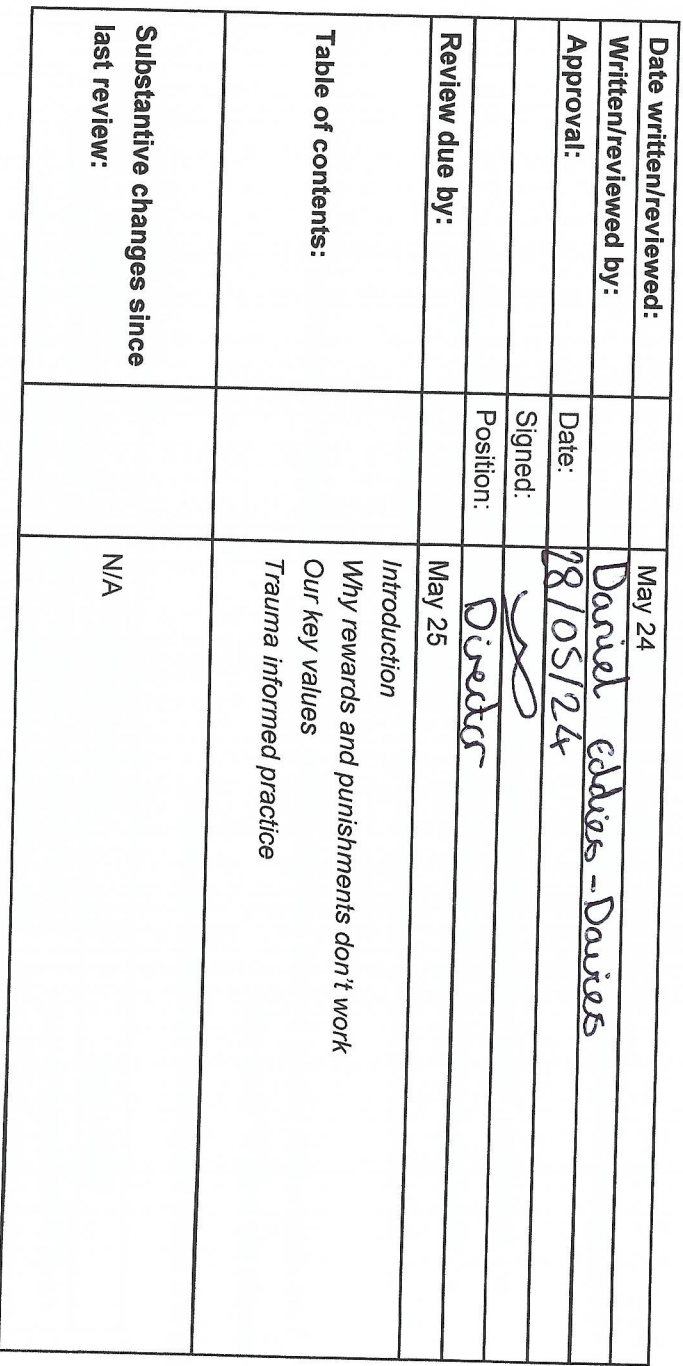 Date written/reviewed: May 24
Written/reviewed by: Daniel Eddies-Davies
Approval: Date: 28/05/24
Signed:
Position: Director
Review due by: May 25
Table of contents:
Introduction
Why rewards and punishments don't work
Our key values
Trauma informed practice
Substantive changes since
last review:
N/A